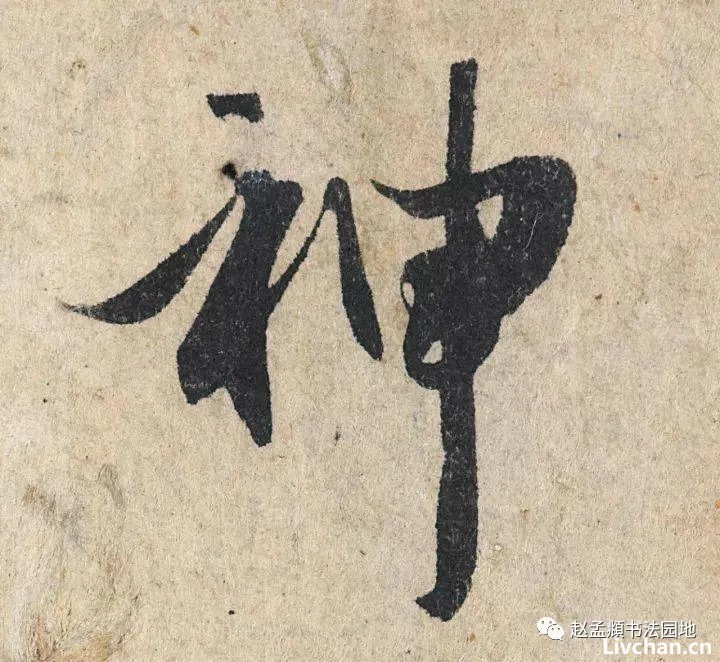 神
赵孟頫书法园地
Livchan.cn